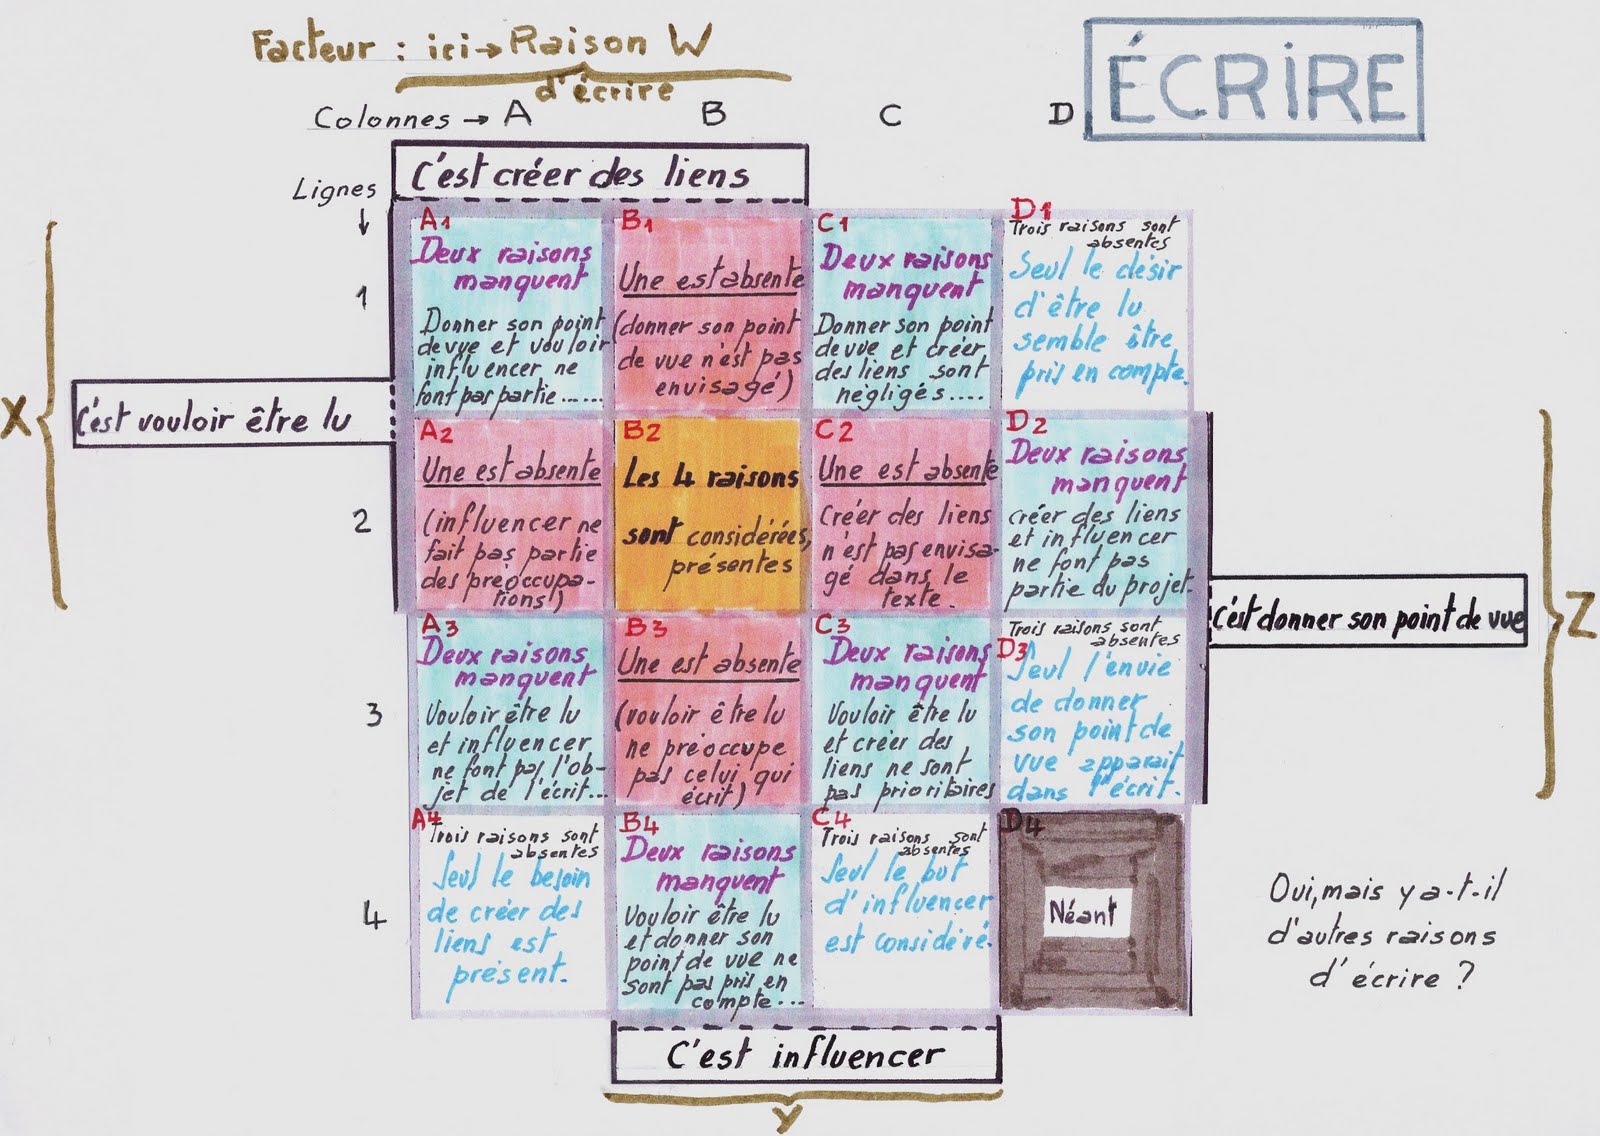 Facteur : ici → Raison W
d'écrire
ÉCRIRE
Colonnes → A B C D
C'est créer des liens
Lignes
↓
1
2
3
4
X
C'est vouloir être lu
A1
Deux raisons
manquent
Donner son point
de vue et vouloir
influencer ne
font pas partie......
B1
Une est absente
(donner son point
de vue n'est pas
envisagé)
C1
Deux raisons
manquent
Donner son point
de vue et créer
des liens sont
négligés....
D1
Trois raisons sont
absentes
Seul le désir
d'être lu
semble être
pris en compte.
A2
Une est absente
(influencer ne
fait pas partie
des préoccupa-
tions)
B2
Les 4 raisons
sont considérées,
présentes
C2
Une est absente
Créer des liens
n'est pas envisa-
gé dans le
texte.
D2
Deux raisons
manquent
créer des liens
et influencer
ne font pas
partie du projet.
C'est donner son point de vue
Z
A3
Deux raisons
manquent
Vouloir être lu
et influencer
ne font pas l'ob-
jet de l'écrit...
B3
Une est absente
(vouloir être lu
ne préoccupe
pas celui qui
écrit)
C3
Deux raisons
manquent
Vouloir être lu
et créer des
liens ne sont
pas prioritaires
Trois raisons sont
absentes
D3
Seul l'envie
de donner
son point de
vue apparait
dans l'écrit.
A4
Trois raisons sont
absentes
Seul le besoin
de créer des
liens est
présent.
B4
Deux raisons
manquent
Vouloir être lu
et donner son
point de vue ne
sont pas pris en
compte...
C4
Trois raisons sont
absentes
Seul le but
d'influencer
est considéré.
D4
Néant
Oui, mais y a-t-il
d'autres raisons
d'écrire ?
C'est influencer
Y